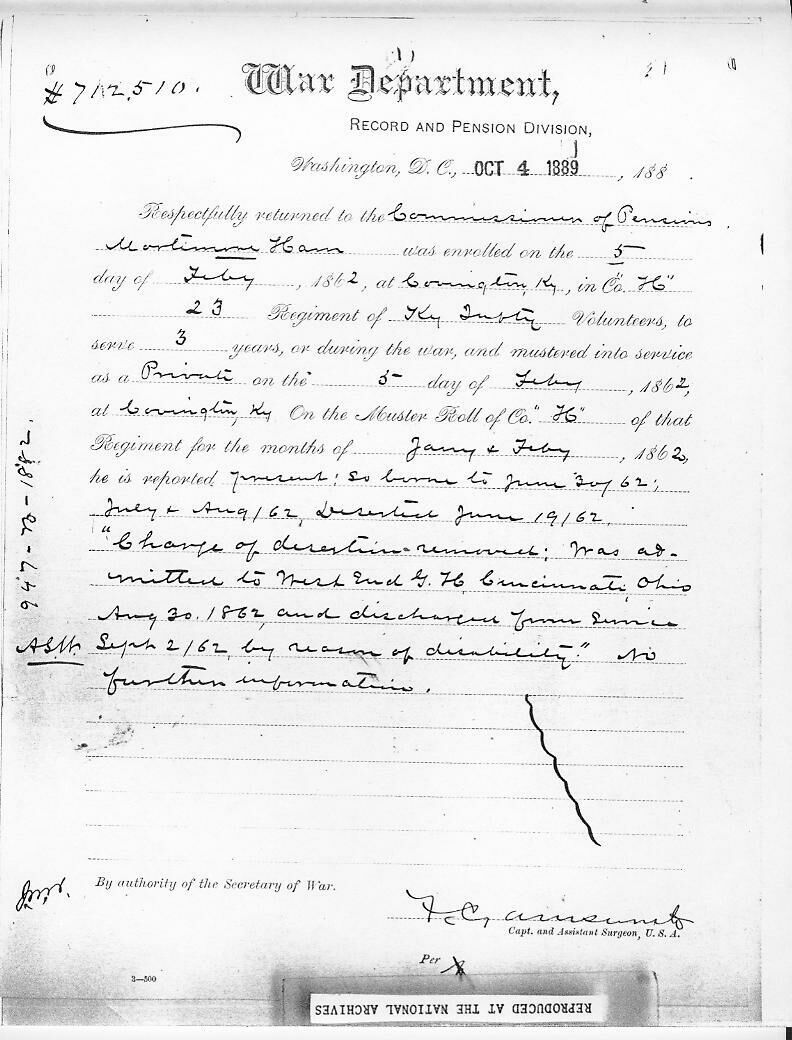 #712,510.
War Department,
RECORD AND PENSION DIVISION,
Washington, D. C., OCT 4 1889, 188 .
Respectfully returned to the Commissioner of Pensions.
Mortimore Ham was enrolled on the 5
day of Feby, 1862, at Covington, Ky, in Co. "H"
23 Regiment of Ky Infty Volunteers, to
serve 3 years, or during the war, and mustered into service
as a Private on the 5 day of Feby, 1862,
at Covington, Ky On the Muster Roll of Co. "H" of that
Regiment for the months of Jany & Feby, 1862,
he is reported present: So borne to June 30/62;
July & Aug/62, Deserted June 19/62.
"Charge of desertion removed; Was ad-
mitted to West End G. H, Cincinnati, Ohio
Aug 30. 1862, and discharged from Service
Sept 2/62, by reason of disability." No
further information.
947-B-1882.
By authority of the Secretary of War.
F. C. Ainsworth
Capt. and Assistant Surgeon, U. S. A.
Per
3—500
REPRODUCED AT THE NATIONAL ARCHIVES